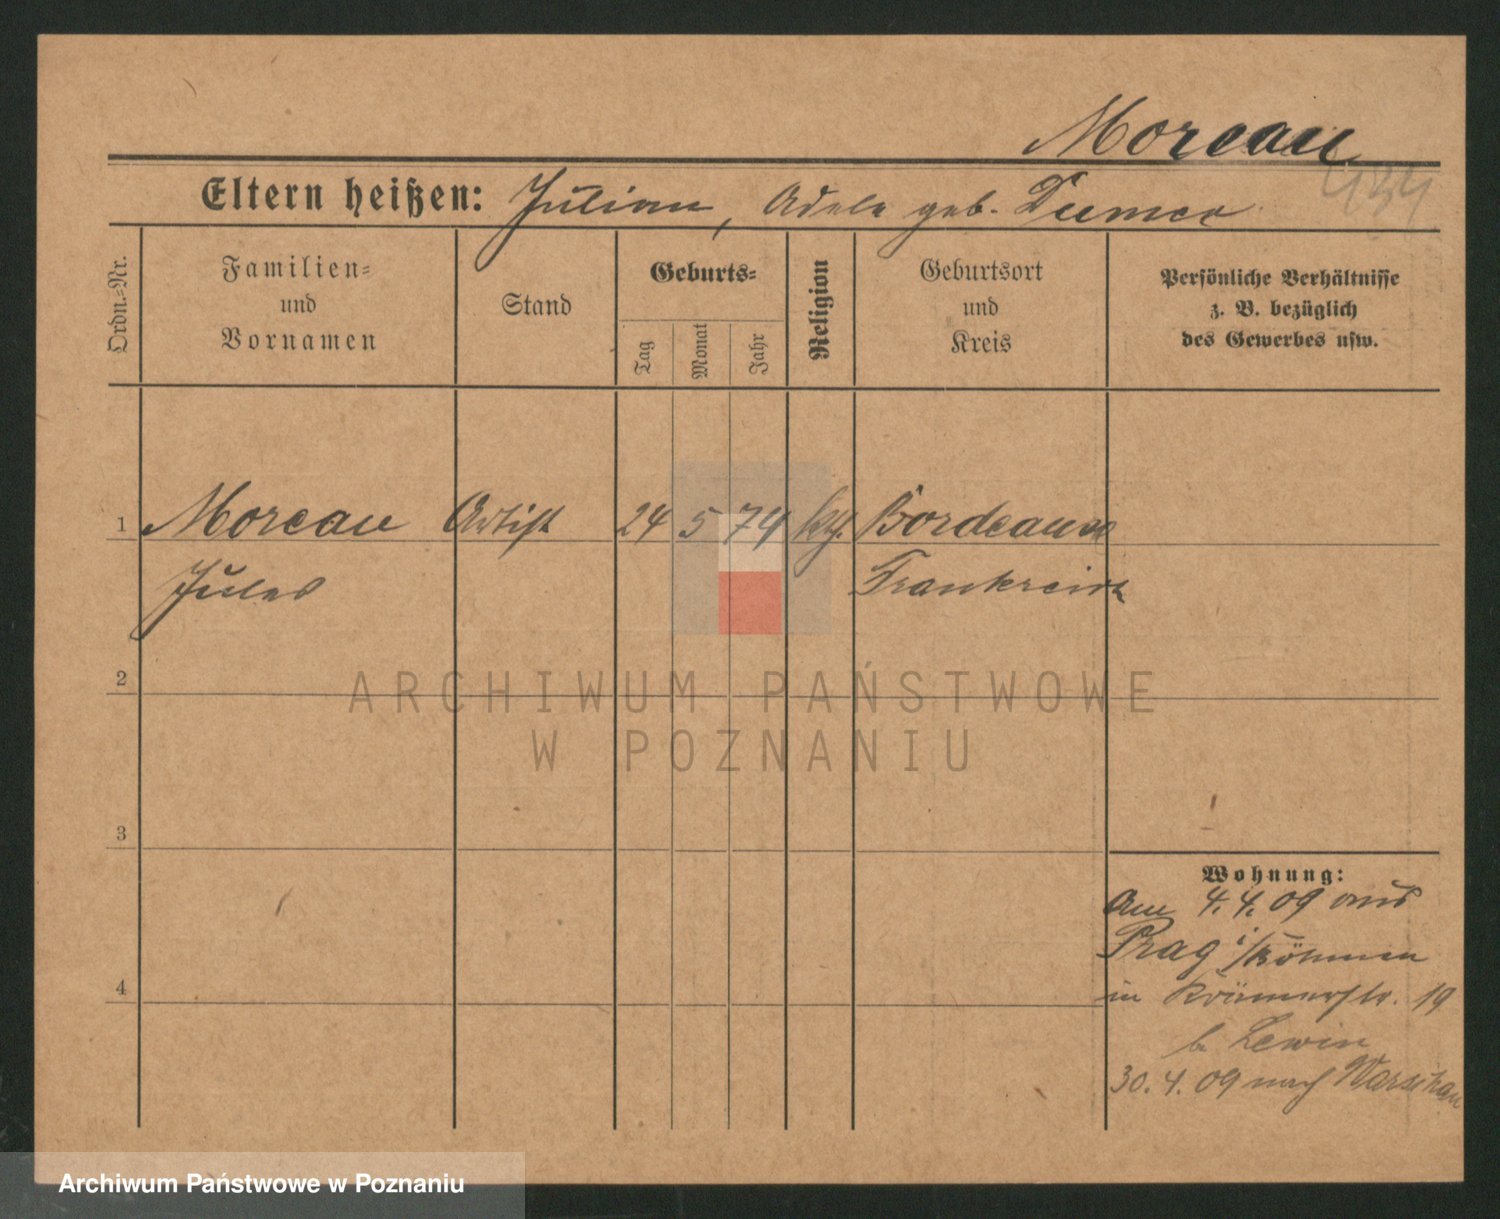 Moreau
Eltern heißen: Julian, Adele geb.
434
Ordn.=Nr.
Familien=
und
Vornamen
Stand
Geburts=
Tag
Monat
Jahr
Religion
Geburtsort
und
Kreis
Persönliche Verhältnisse
z. B. bezüglich
des Gewerbes usw.
1 Moreau Artist 24 5 74 kth. Bordeaux
Jules Frankreich
2
ARCHIWUM PAŃSTWOWE
W POZNANIU
3
Wohnung:
Am 4.4.09 aus
Prag i/Böhmen
4
in Krämerstr. 19
b. Lewin
30.4.09 nach Warschau
Archiwum Państwowe w Poznaniu